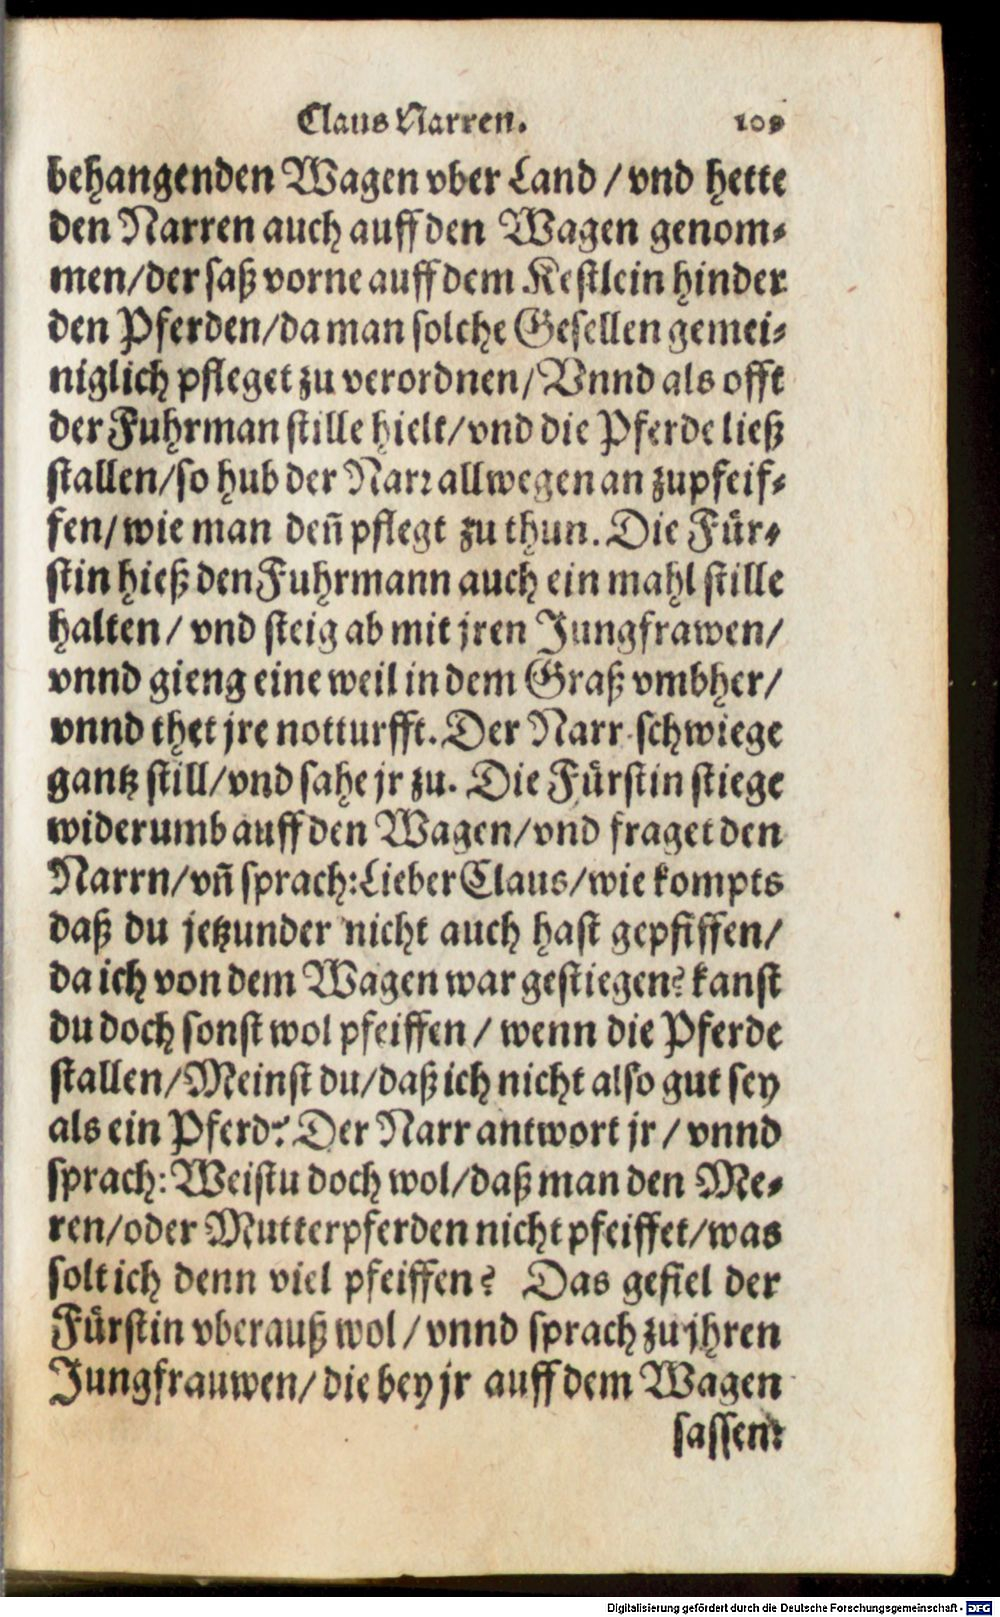 Claus Narren. 109
behangenden Wagen vber Land / vnd hette
den Narren auch auff den Wagen genom⸗
men/der saß vorne auff dem Kestlein hinder
den Pferden/da man solche Gesellen gemei⸗
niglich pfleget zu verordnen/Vnnd als offt
der Fuhrman stille hielt/vnd die Pferde ließ
stallen/so hub der Narr allwegen an zupfeif⸗
fen/wie man deñ pflegt zu thun. Die Für⸗
stin hieß den Fuhrmann auch ein mahl stille
halten/ vnd steig ab mit jren Jungfrawen/
vnnd gieng eine weil in dem Graß vmbher/
vnnd thet jre notturfft. Der Narr schwiege
gantz still/vnd sahe jr zu. Die Fürstin stiege
widerumb auff den Wagen/vnd fraget den
Narrn/vñ sprach: Lieber Claus/wie kompts
daß du jetzunder nicht auch hast gepfiffen/
da ich von dem Wagen war gestiegen? kanst
du doch sonst wol pfeiffen / wenn die Pferde
stallen/Meinst du/daß ich nicht also gut sey
als ein Pferd? Der Narr antwort jr / vnnd
sprach: Weistu doch wol/daß man den Me⸗
ren/oder Mutterpferden nicht pfeiffet/was
solt ich denn viel pfeiffen? Das gefiel der
Fürstin vberauß wol / vnnd sprach zu jhren
Jungfrauwen/die bey jr auff dem Wagen
sassen:
Digitalisierung gefördert durch die Deutsche Forschungsgemeinschaft - DFG